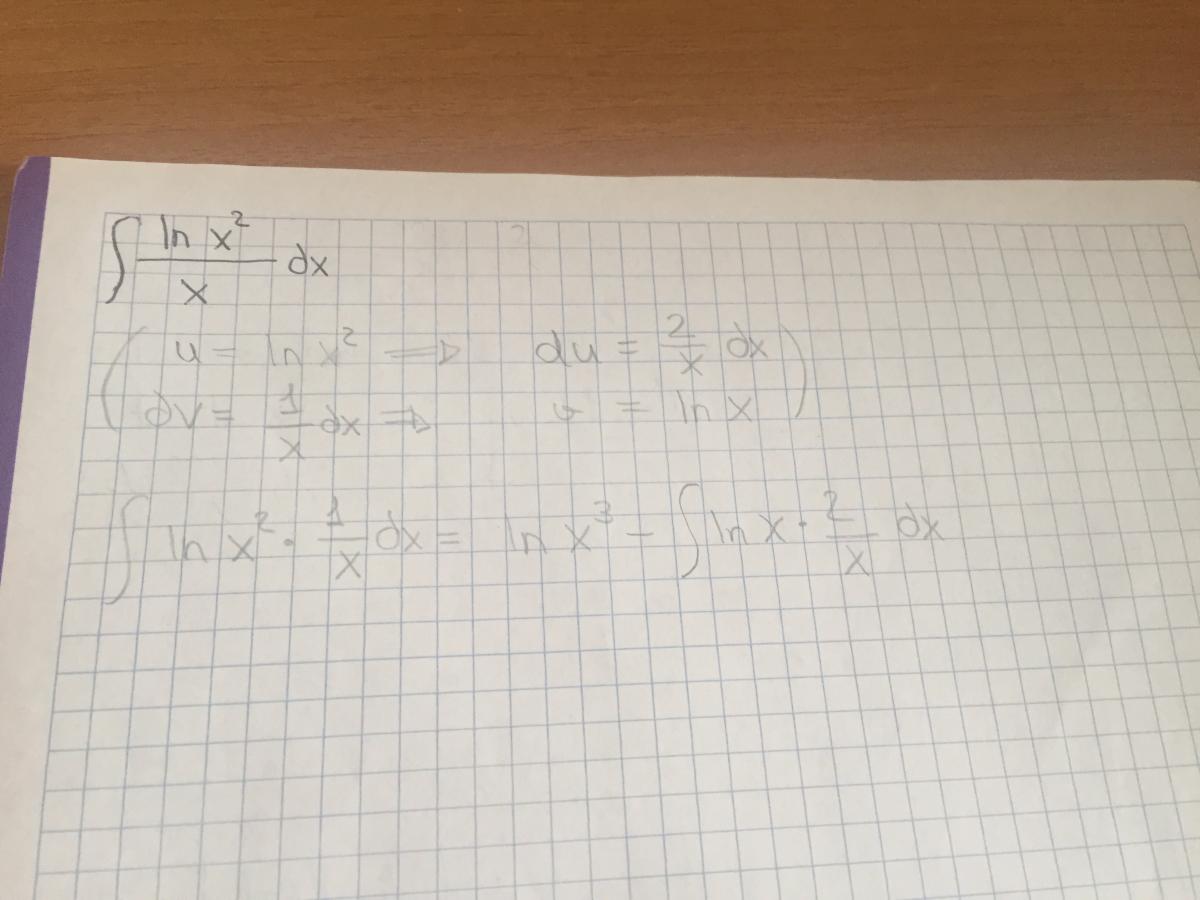 ∫ ln x² / x dx
( u = ln x² ⇒ du = 2/x dx
dv = 1/x dx ⇒ v = ln x )
∫ ln x² · 1/x dx = ln x³ − ∫ ln x · 2/x dx